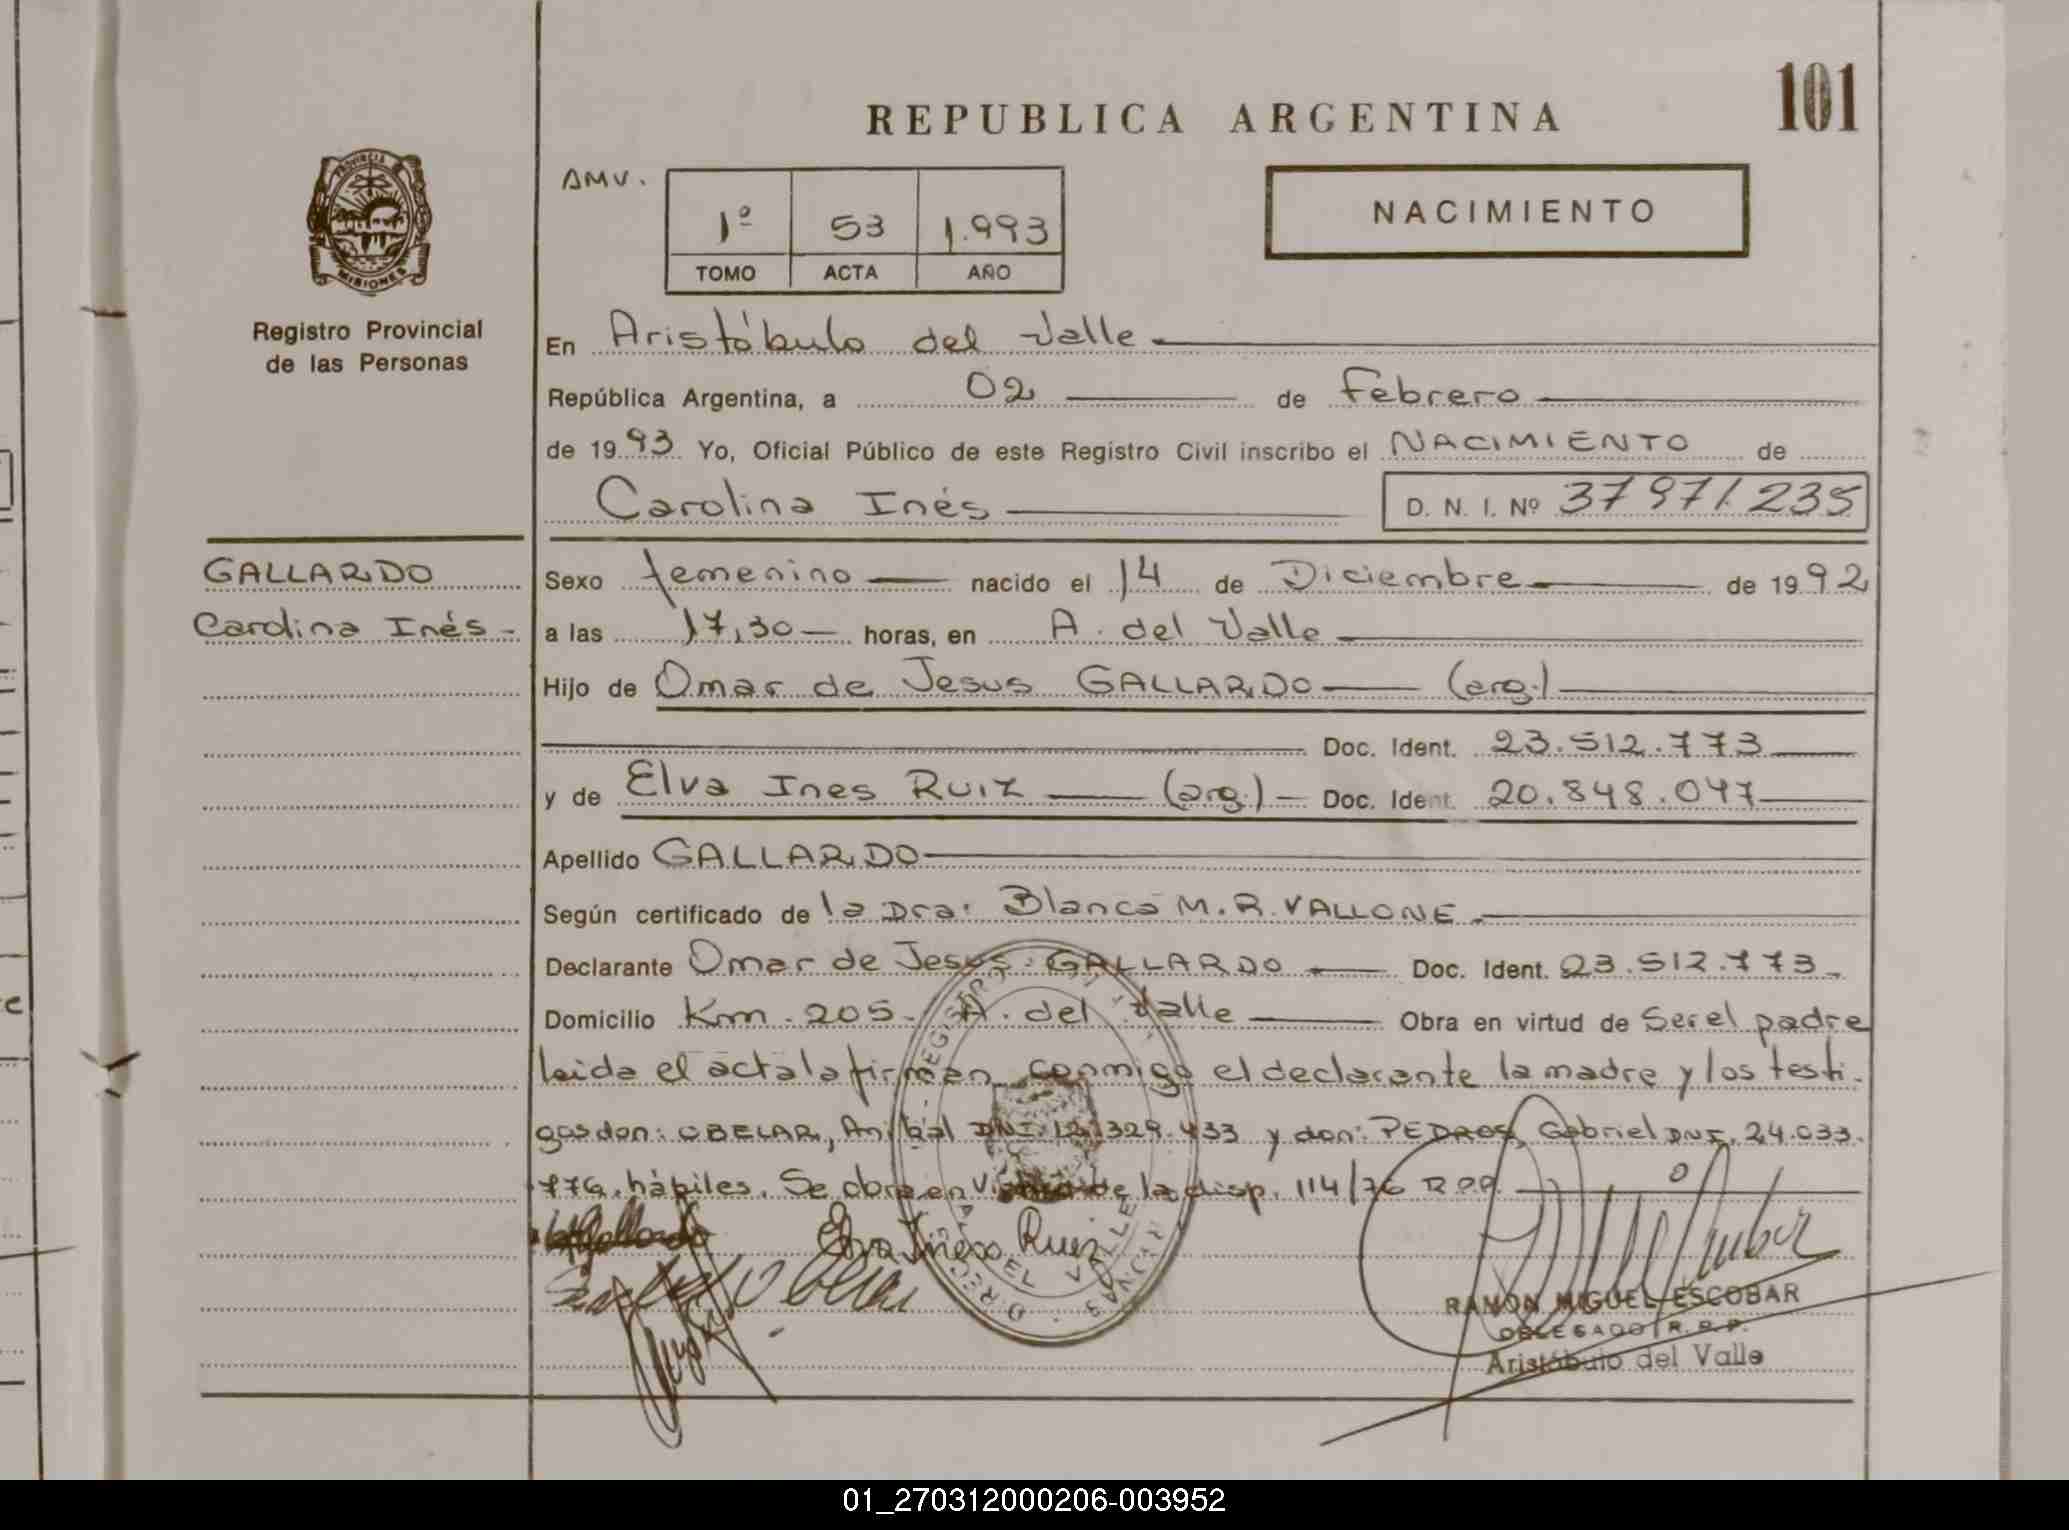 101
REPUBLICA ARGENTINA
PROVINCIA
MISIONES
Registro Provincial
de las Personas
AMV.
1º 53 1.993
TOMO ACTA AÑO
NACIMIENTO
En Aristóbulo del Valle
República Argentina, a 02 de Febrero
de 1993 Yo, Oficial Público de este Registro Civil inscribo el NACIMIENTO de
Carolina Inés D. N. I. Nº 37971.235
GALLARDO
Carolina Inés -
Sexo femenino nacido el 14 de Diciembre de 1992
a las 17,30 horas, en A. del Valle
Hijo de Omar de Jesus GALLARDO (arg.)
Doc. Ident. 23.512.773
y de Elva Ines RUIZ (arg.) Doc. Ident. 20.848.047
Apellido GALLARDO
Según certificado de la Dra. Blanca M. R. VALLONE
Declarante Omar de Jesus GALLARDO Doc. Ident. 23.512.773.
Domicilio Km. 205. A. del Valle Obra en virtud de Ser el padre
leida el acta la firman conmigo el declarante la madre y los testi-
gos don: OBELAR, Anibal DNI. 12.329.433 y don: PEDROS, Gabriel DNI. 24.033.
776. hábiles. Se obra en de la disp. 114/76 R.P.P.
Elva Ines Ruiz
RAMON MIGUEL ESCOBAR
DELEGADO R. P. P.
Aristóbulo del Valle
01_270312000206-003952